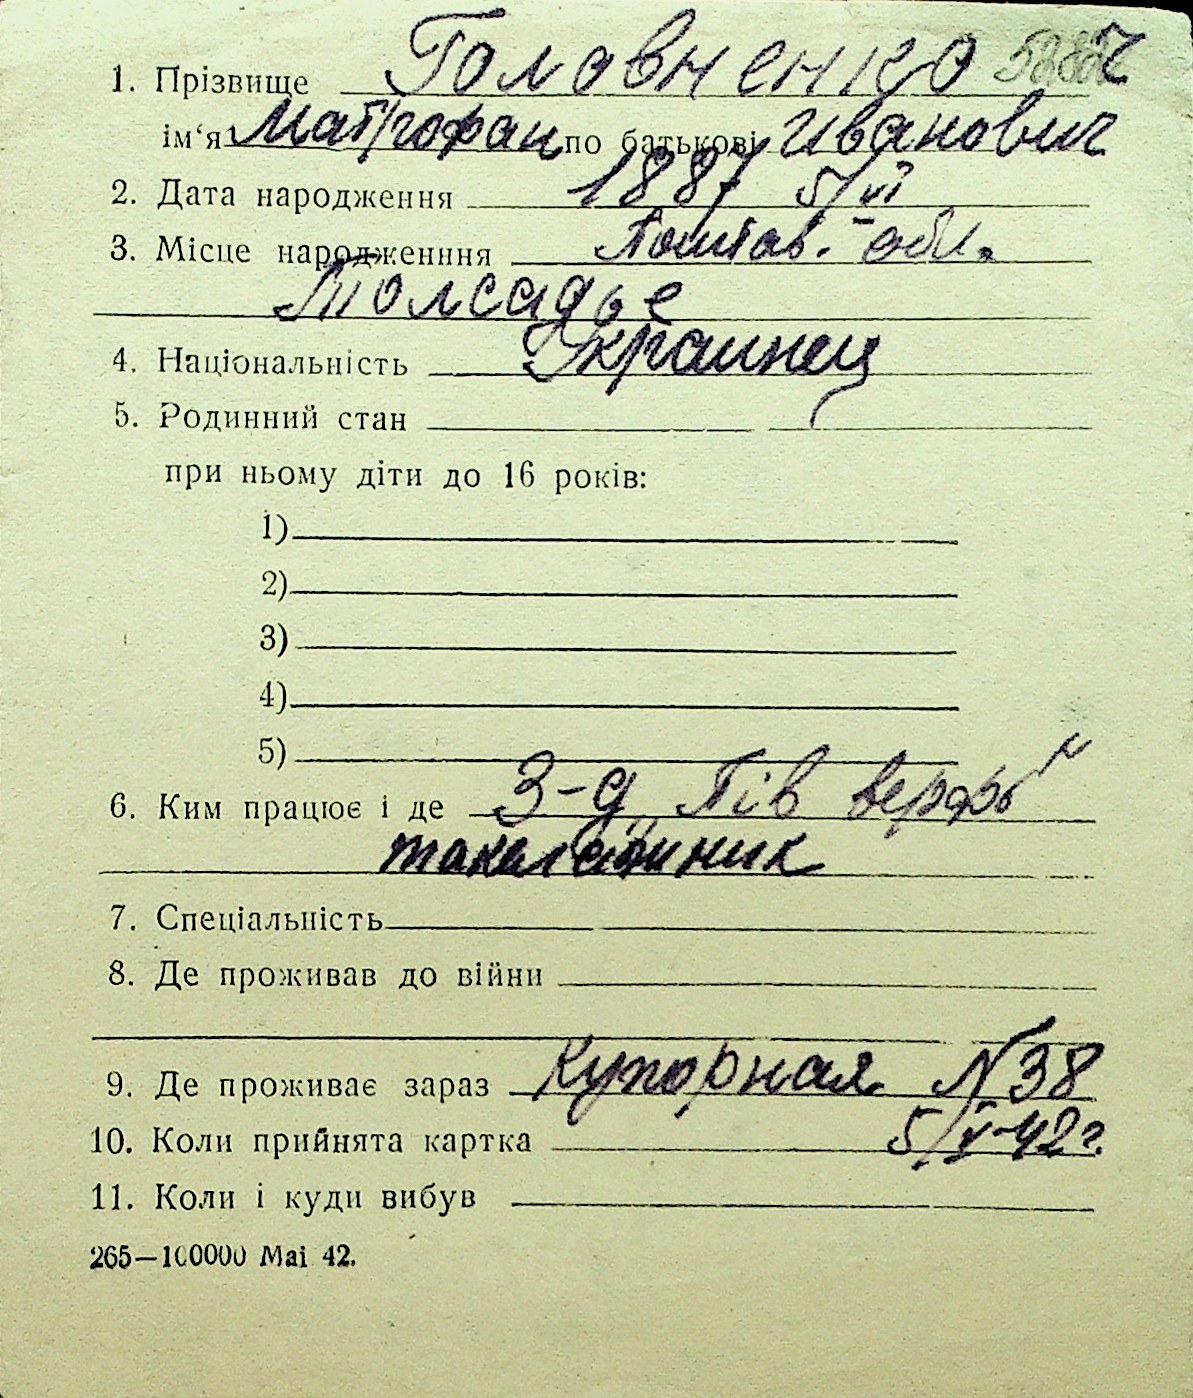 1. Прізвище Головненко
ім‘я Матрофан по батькові Иванович
2. Дата народження 1887 5/VI
3. Місце народженння Полтав. обл.
4. Національність Украинец
5. Родинний стан
при ньому діти до 16 років:
1)
2)
3)
4)
5)
6. Ким працює і де З-д „Пів верфь“
такелажник
7. Спеціальність
8. Де проживав до війни
9. Де проживає зараз Купорная N 38
10. Коли прийнята картка 5/V-42 г.
11. Коли і куди вибув
265—100000 Mai 42.